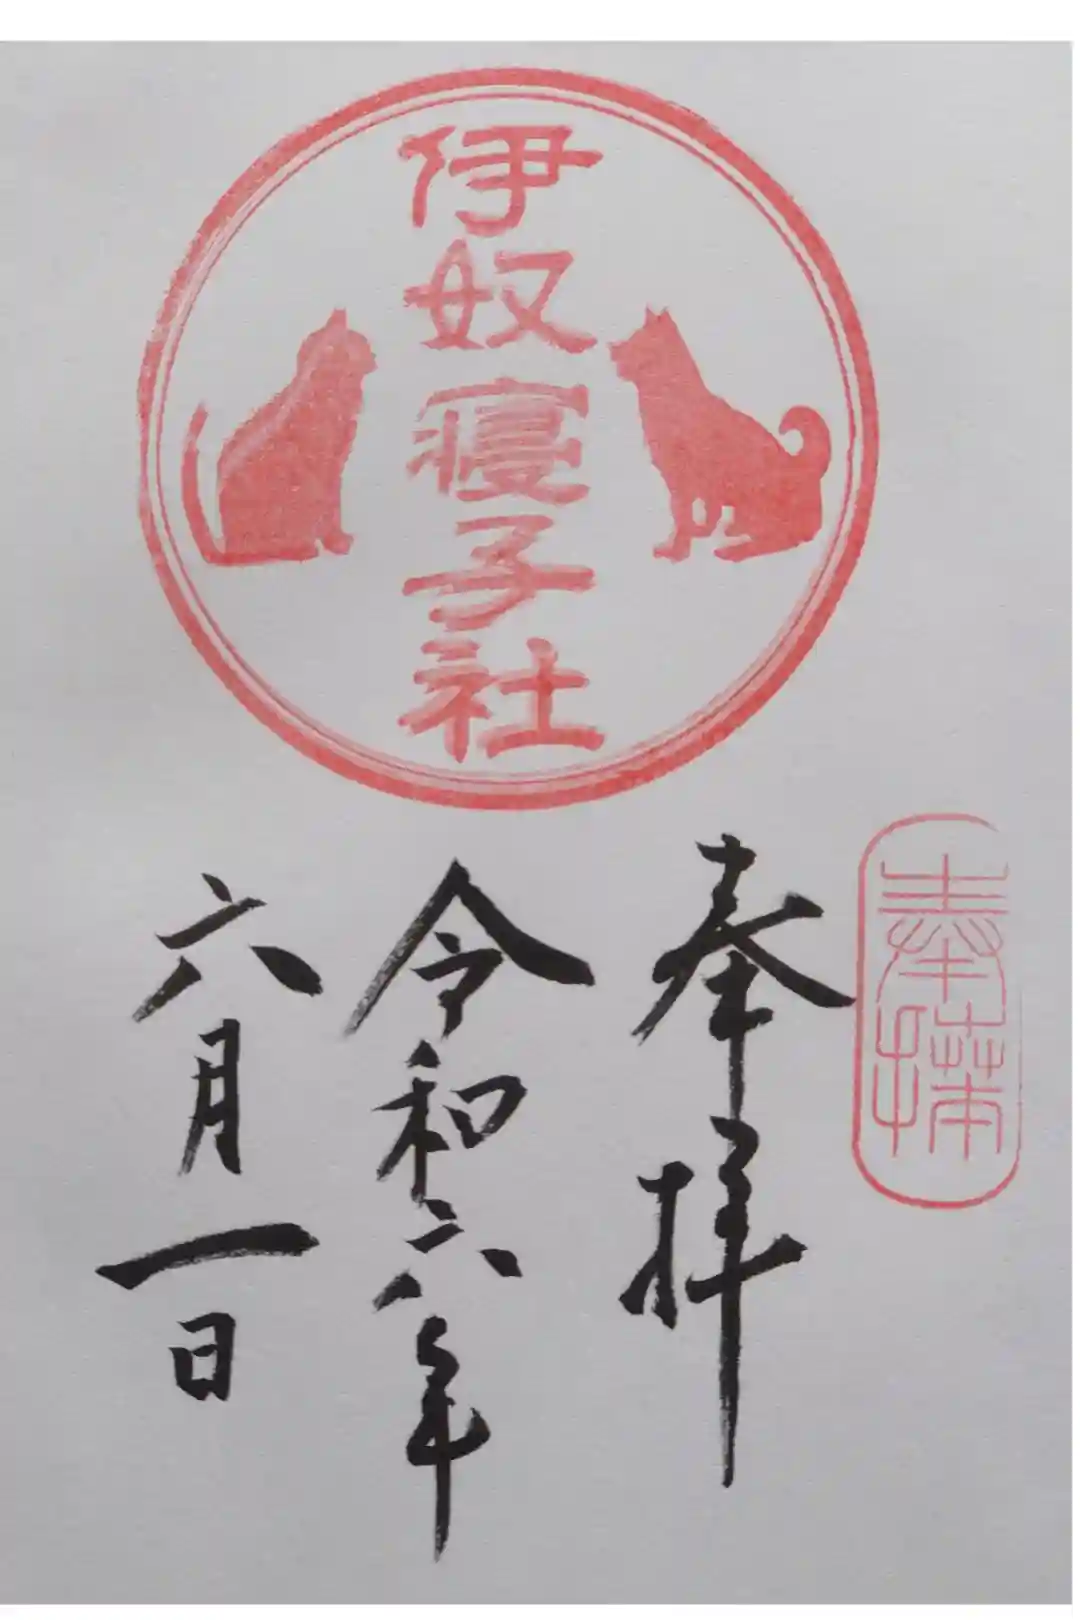 伊奴寝子社
奉拝
奉拝
令和六年
六月一日